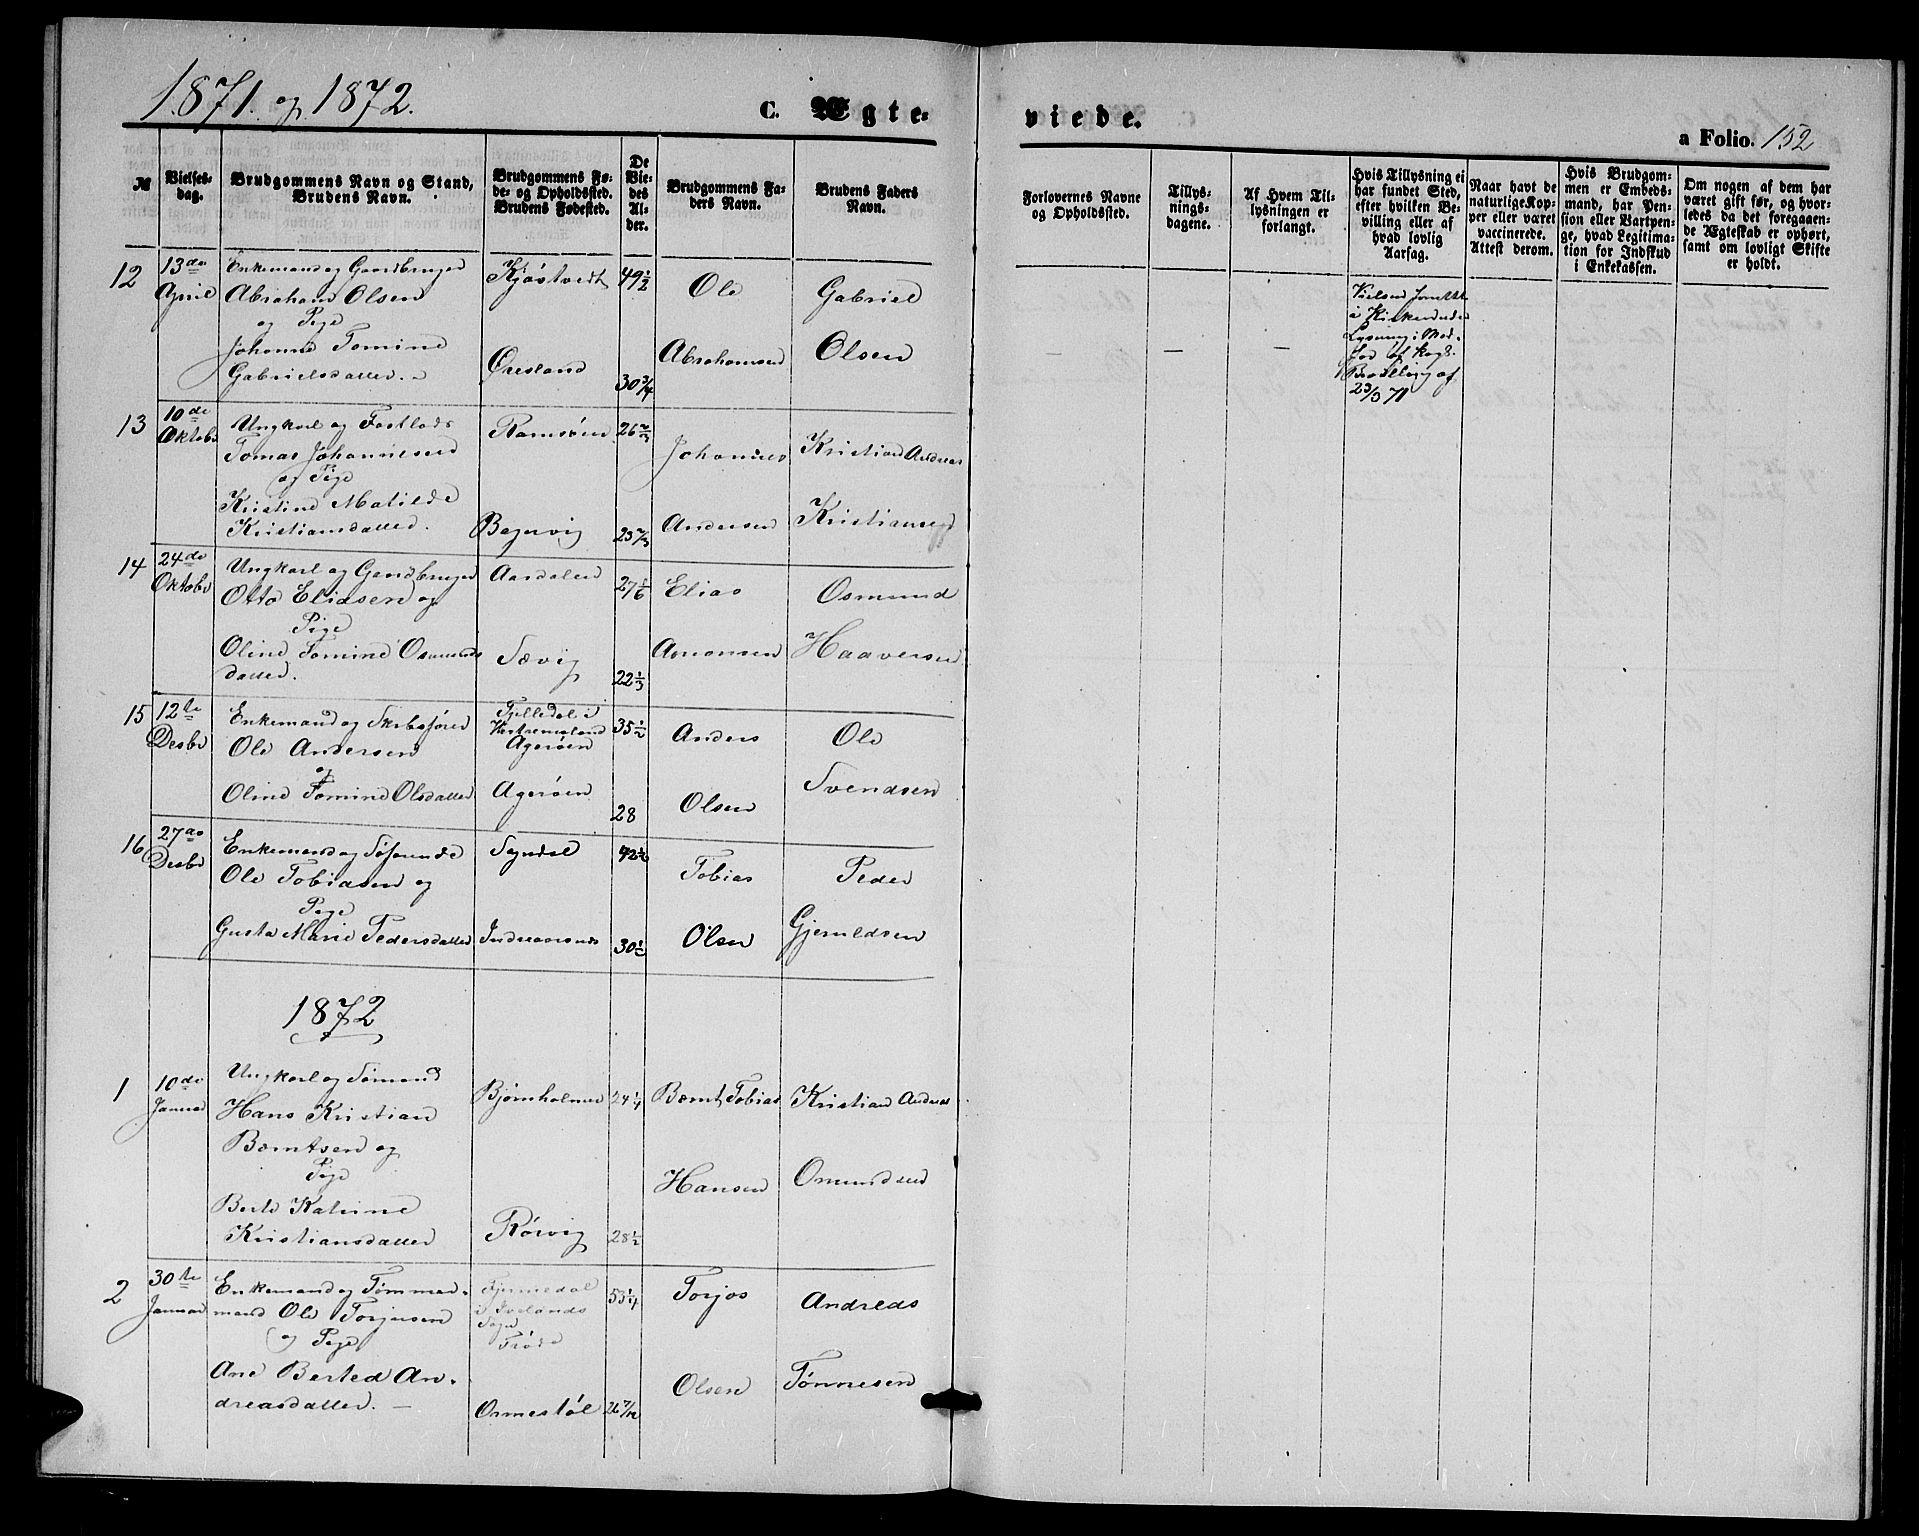 1871. og 1872.
C. Ægte-
viede.
a Folio. 152
№
Vielses-
dag.
Brudgommens Navn og Stand,
Brudens Navn.
Brudgommens Fø-
de- og Opholdssted.
Brudens Fødested.
De
Vie-
des
Al-
der.
Brudgommens Fa-
ders Navn.
Brudens Faders
Navn.
Forlovernes Navne
og Opholdssted.
Tillys-
nings-
dagene.
Af Hvem Til-
lysningen er
forlangt.
Hvis Tillysning ei
har fundet Sted,
efter hvilken Be-
villing eller af
hvad lovlig
Aarsag.
Naar havt de
naturlige Kop-
per eller været
vaccinerede.
Attest derom.
Hvis Brudgom-
men er Embeds-
mand, har Pen-
sion eller Vartpen-
ge, hvad Legitima-
tion for Indskud
i Enkekassen.
Om nogen af dem har
været gift før, og hvor-
ledes da det foregaaen-
de Ægteskab er ophørt,
samt om lovligt Skifte
er holdt.
12
13de
April
Enkemand og Gaardbruger
Abraham Olsen
og Pige
Johanne Tomine
Gabrielsdatter.
Kjøstvedt
Øresland
49 1/2
30 3/4
Ole
Abrahamsen
Gabriel
Olsen
i Kirken uden
Lysning i
23/3 71
13
10de
Oktobr
Ungkarl og
Tomas Johannesen
og Pige
Kristine Matilde
Kristiansdatter.
Ramsøen
26 2/3
Johannes
Andersen
Kristian Andreas
Kristiansen
14
24de
Oktobr
Ungkarl og Gaardbruger
Otto Eliasen og
Pige
Oline Tomine Osmunds
datter.
Aardalen
Sævig
27 1/6
22 1/3
Elias
Aanonsen
Osmund
Haaversen
15
12te
Desbr
Enkemand og Skibsfører
Ole Andersen
og
Oline Tomine Olsdatter
Agerøen
Agerøen
35 1/2
28
Anders
Olsen
Ole
Svendsen
16
27de
Desbr
Enkemand og Søfarende
Ole Tobiasen og
Pige
Gusta Marie Pedersdatter
42 1/2
30 1/2
Tobias
Olsen
Peder
Gjeruldsen
1872
1
10de
Januar
Ungkarl og Sømand
Hans Kristian
Berntsen og
Pige
Berte Katrine
Kristiansdatter
Bjørnholmen
Rørvig
24 1/4
28 1/2
Bernt Tobias
Hansen
Kristian Andreas
Omundsen
2
30te
Januar
Enkemand og Tømmer-
mand Ole Torjusen
og Pige
Ane Bertea An-
dreasdatter.
i Ivelands
Sogn
Ormestøl
53 1/4
26 7/12
Torjus
Olsen
Andreas
Tønnesen